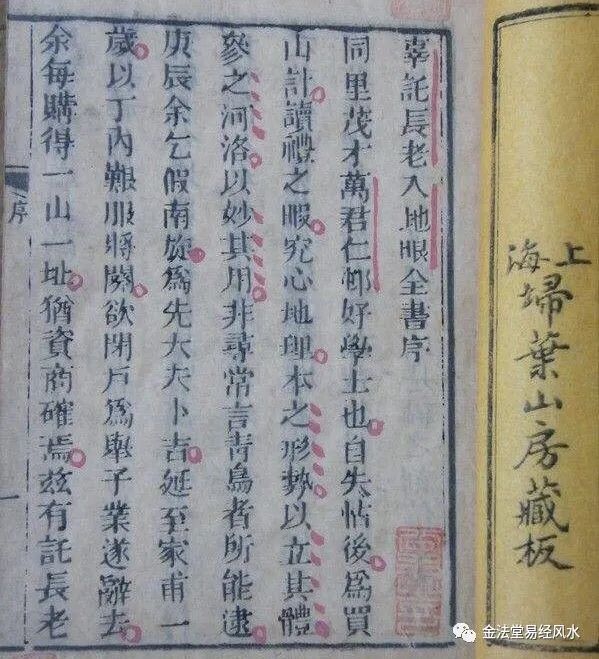 上海埽葉山房藏板
辜託長老入地眼全書序
同里茂才萬君仁邨好學士也自失怙後爲買
山計讀禮之暇究心地理本之形勢以立其體
參之河洛以妙其用非尋常言青鳥者所能逮
庚辰余乞假南旋爲先大夫卜吉延至家甫一
歲以丁內艱服將闋欲閉戶爲舉子業遂辭去
余每購得一山一址猶資商確焉茲有託長老
序
一
金法堂易经风水